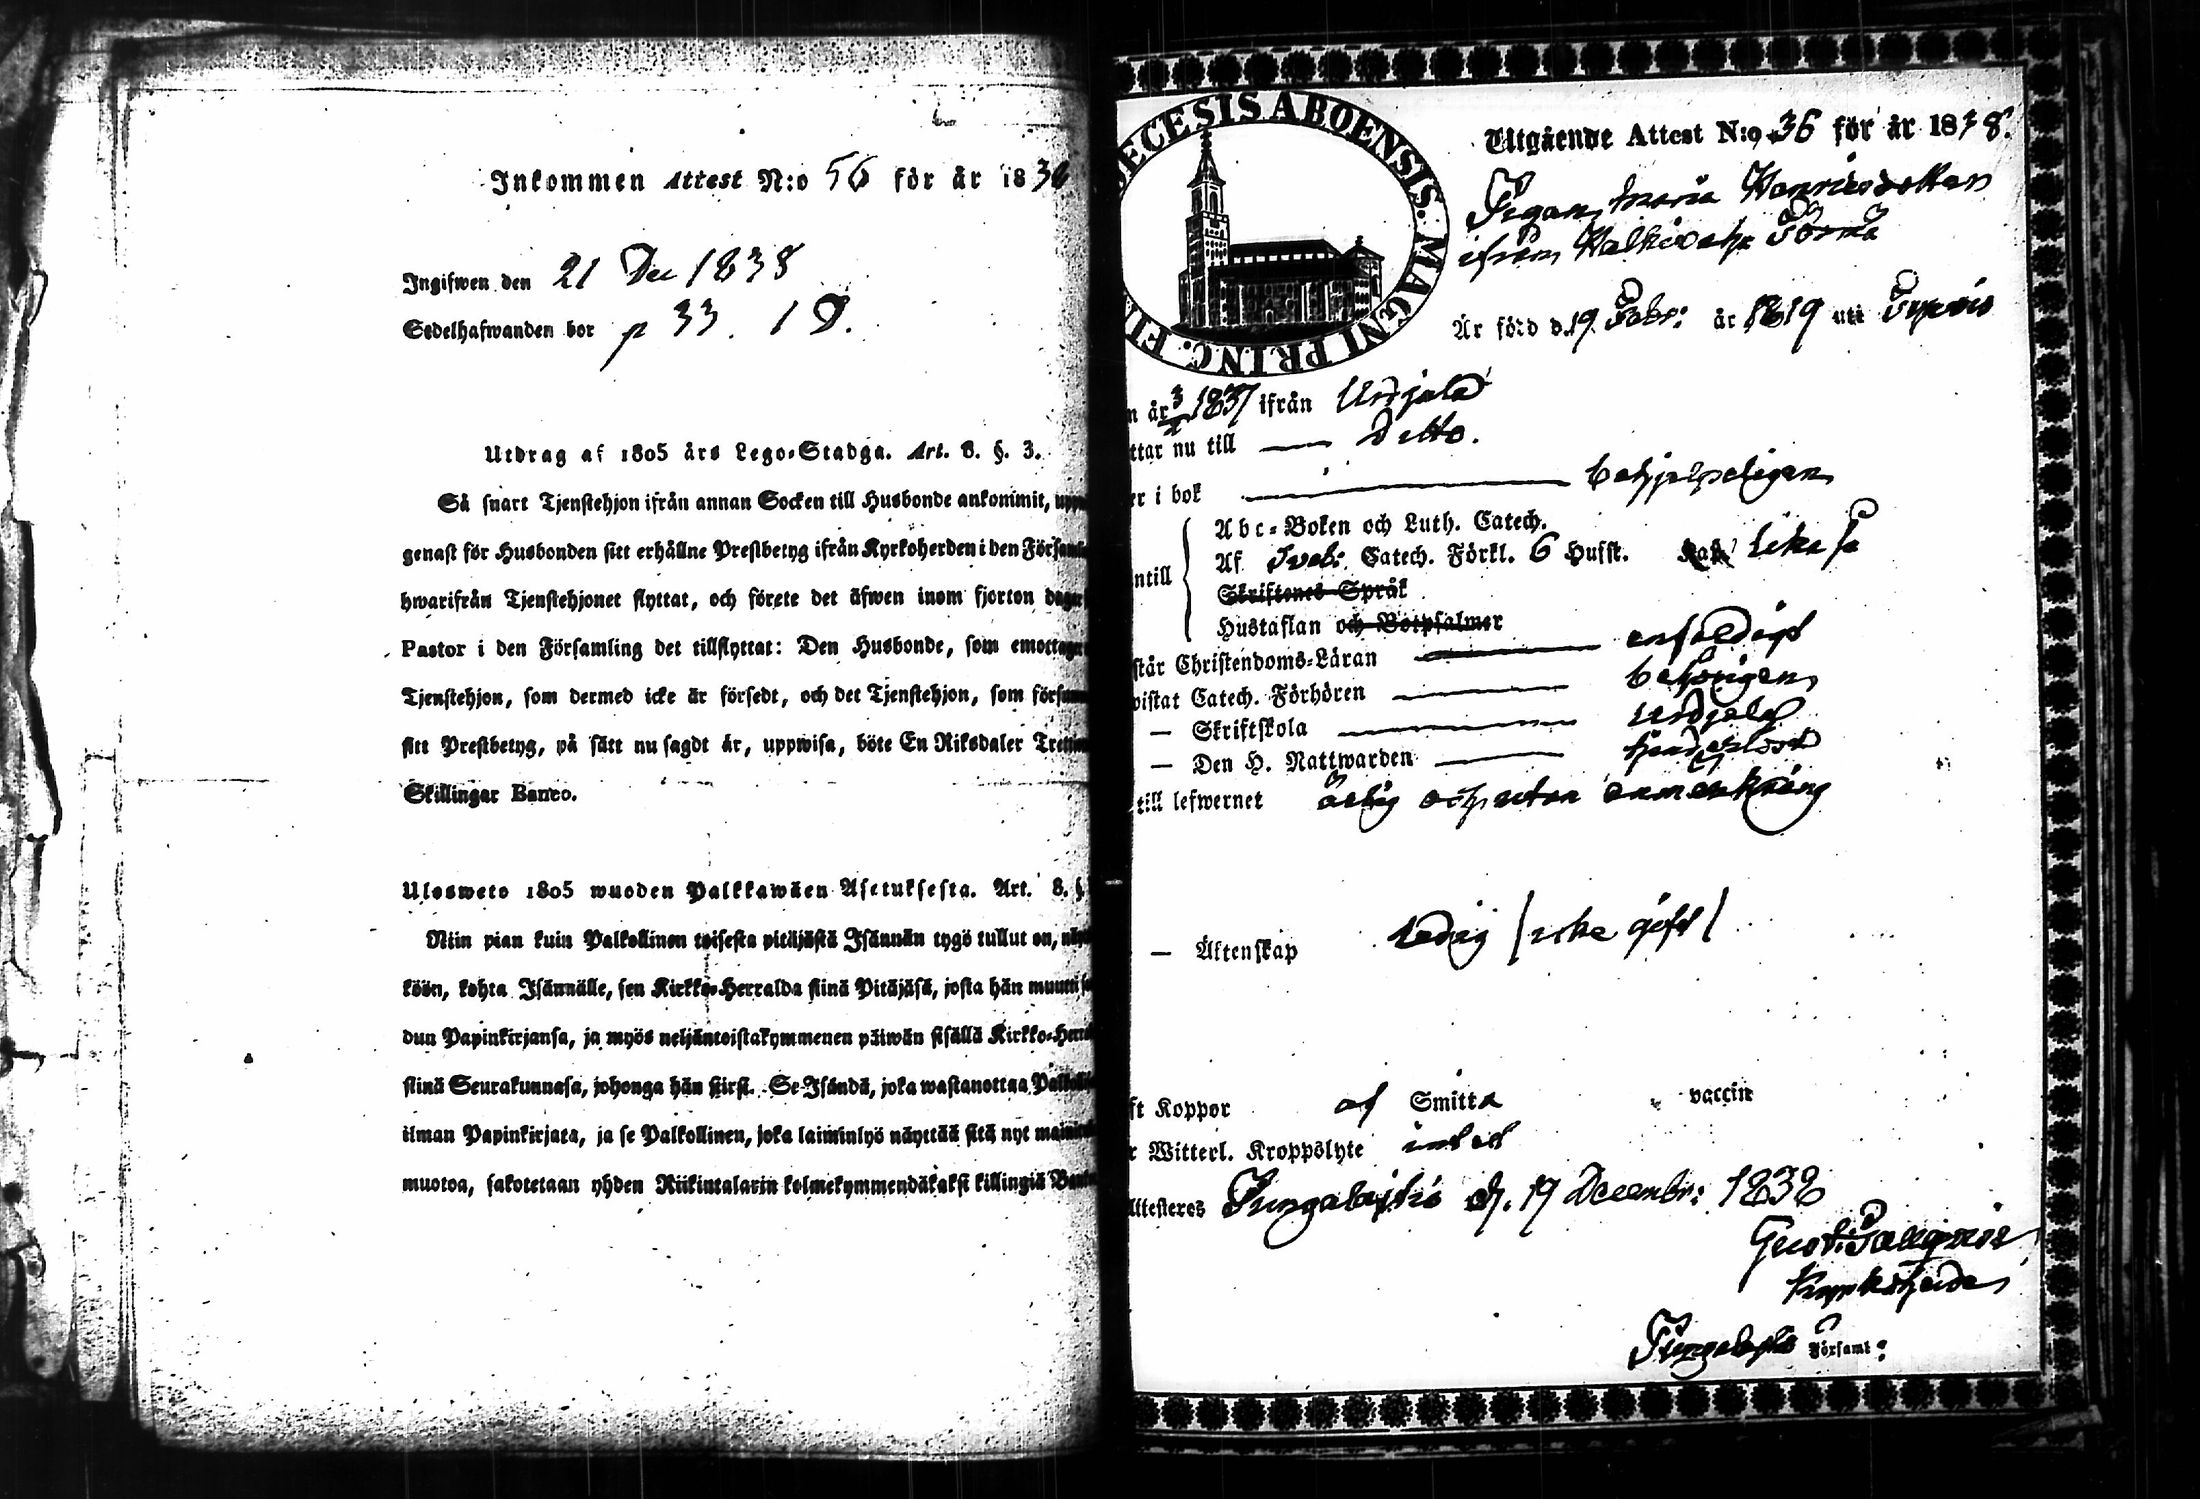 Inkommen Attest N:o 56 för år 1838
Ingifwen den 21 Dec 1838
Sedelhafwanden bor p 33. 1 D.
Utdrag af 1805 års Lego-Stadga. Art. 8. §. 3.
Så snart Tjenstehjon ifrån annan Socken till Husbonde ankommit,
genast för Husbonden sitt erhållne Prestbetyg ifrån Kyrkoherden i den
hwarifrån Tjenstehjonet flyttat, och förete det äfwen inom fjorton dagar
Pastor i den Församling det tillflyttat: Den Husbonde, som emottager
Tjenstehjon, som dermed icke är försedt, och det Tjenstehjon, som
sitt Prestbetyg, på sätt nu sagdt är, uppwisa, böte En Riksdaler
Skillingar Banco.
Ulosweto 1805 wuoden Palkkawäen Asetuksesta. Art. 8. §.
Niin pian kuin Palkollinen toisesta pitäjästä Isännän tygö tullut on,
köön, kohta Isännälle, sen Kirkko-Herralda siinä Pitäjäsä, josta hän muutti
dun Papinkirjansa, ja myös neljäntoistakymmenen päiwän sisällä
siinä Seurakunnasa, johonga hän siirsi. Se Isändä, joka wastanottaa
ilman Papinkirjata, ja se Palkollinen, joka laiminlyö näyttää sitä nyt
muotoa, sakotetaan yhden Riikintalarin kolmekymmendäkaksi killingiä
DIECESIS ABOENSIS. MAGNI PRINC. FIN
Utgående Attest N:o 36 för år 1838.
Pigan Maria Henricsdotter
ifrån
Är född d. 19 Febr: år 1819 uti
n år 1837 ifrån Urdjala
ttar nu till — Ditto.
er i bok — behjelpeligen
Abc-Boken och Luth. Catech.
ntill Af Sveb: Catech. Förkl. 6 Hufst. lika så
Skriftenes Språk
Hustaflan och Botpsalmer
står Christendoms-Läran — enfaldigt
vistat Catech. Förhören — behörigen
— Skriftskola — Urdjala
— Den H. Nattwarden —
till lefwernet ärlig och utan anmärkning
— Äktenskap Ledig /icke gift/
ft Koppor af Smitta vaccin
r Witterl. Kroppslyte intet
Attesteres Fungalaitio d. 17 Decembr: 1838
Gust:
Kyrkoherde
Församl: